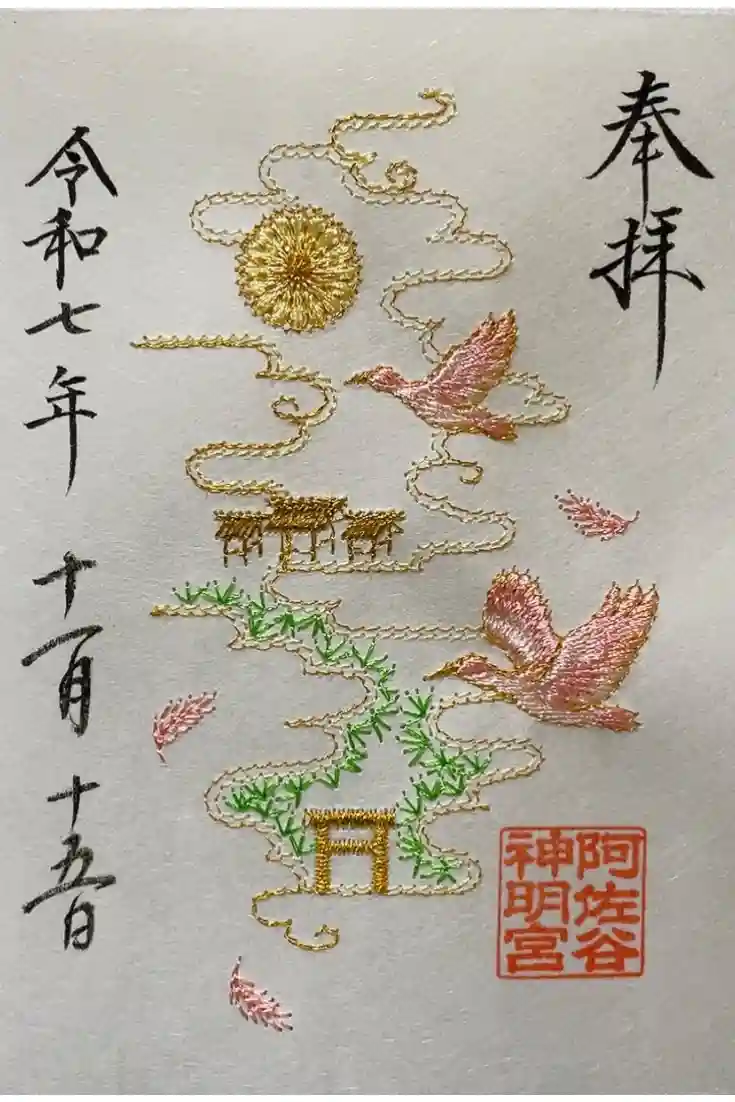 奉拝
阿佐谷
神明宮
令和七年 十一月 十五日